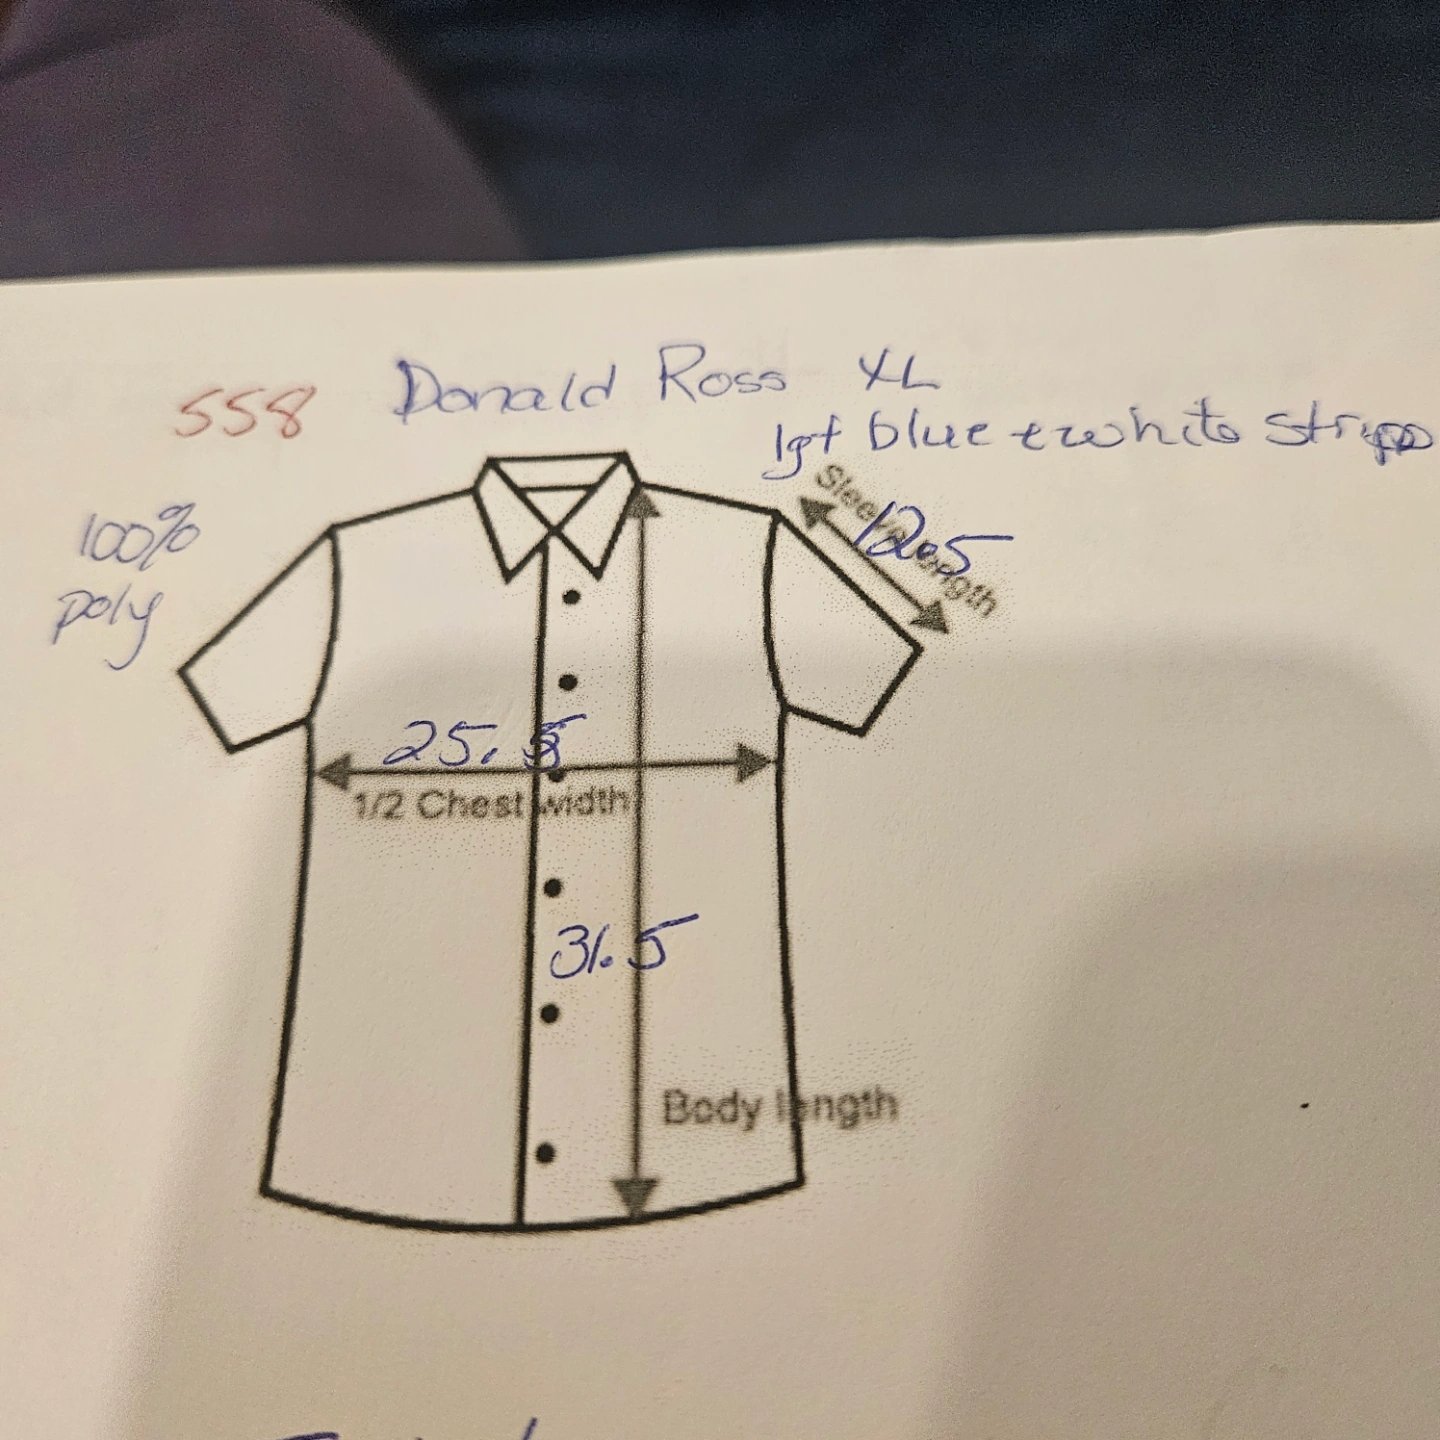 558 Donald Ross XL
lgt blue + white strips
100%
poly
Sleeve length
12.5
25.5
1/2 Chest width
31.5
Body length